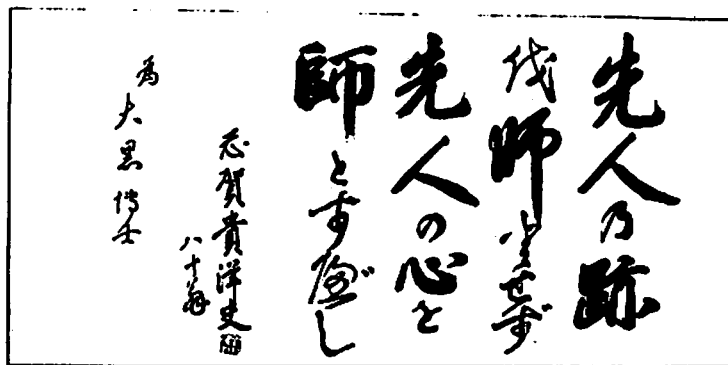 先人乃跡
越師とせず
先人の心を
師とすべし
志賀貴洋史
八十
為大黒博士